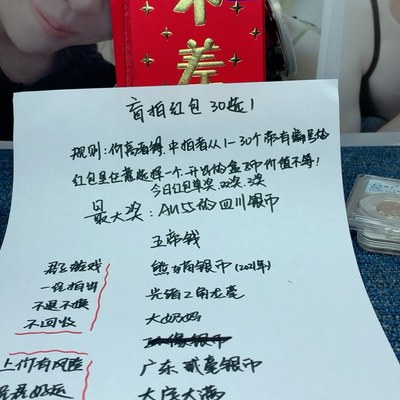 不
差
盲拍红包30选1
规则:价高者得,中拍者从1-30个带有编号的
红包里任意选择一个,开出的盒子币价值不等!
今日红包单奖,双奖,3奖
最大奖:AU55的四川银币
五帝钱
君子游戏
熊猫银币(2021年)
一经拍出
光绪2角龙毫
不退不换
大奶妈
不回收
上价有风险
广东贰毫银币